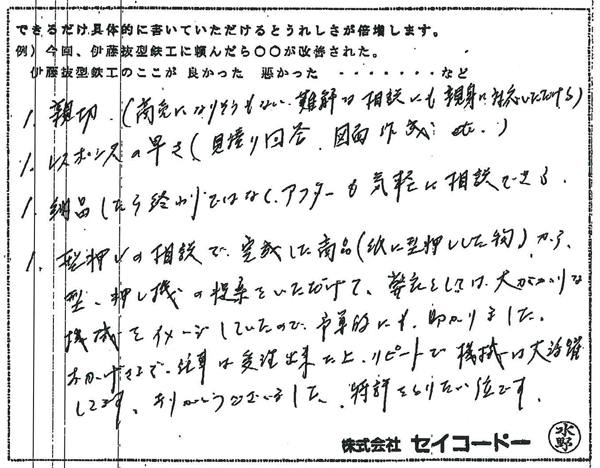 できるだけ具体的に書いていただけるとうれしさが倍増します。
例）今回、伊藤抜型鉄工に頼んだら〇〇が改善された。
伊藤抜型鉄工のここが 良かった 悪かった ・・・・・・・など
1. 親切．（商売になりそうもない、難解な相談にも親身に対応いただける）
1. レスポンスの早さ（見積り回答、図面作成 etc.）
1. 納品したら終わりではなく、アフターも気軽に相談できる．
1. 型押しの相談で、完成した商品（紙に型押しした物）から
型、押し機の提案をいただけて、弊社としては、大がかりな
機械をイメージしていたので、予算的にも、助かりました。
おかげさまで、仕事は受注出来た上、リピートで機械は大活躍
してます。ありがとうございました。特許をとりたい位です。
株式会社 セイコードー 水野